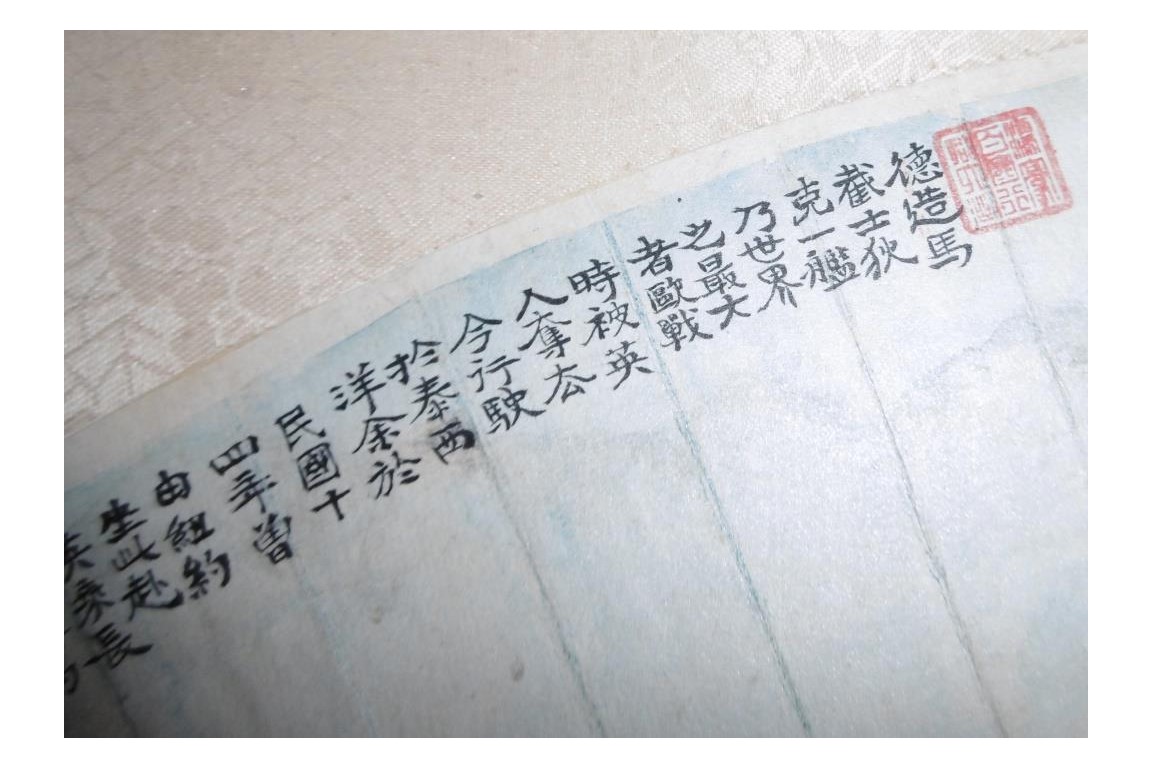 德造馬
截士狄
克一艦
乃世界
之最大
者歐戰
時被英
人奪厺
今行駛
於泰西
洋余於
民國十
四年曾
由紐約
坐此赴
英乘長